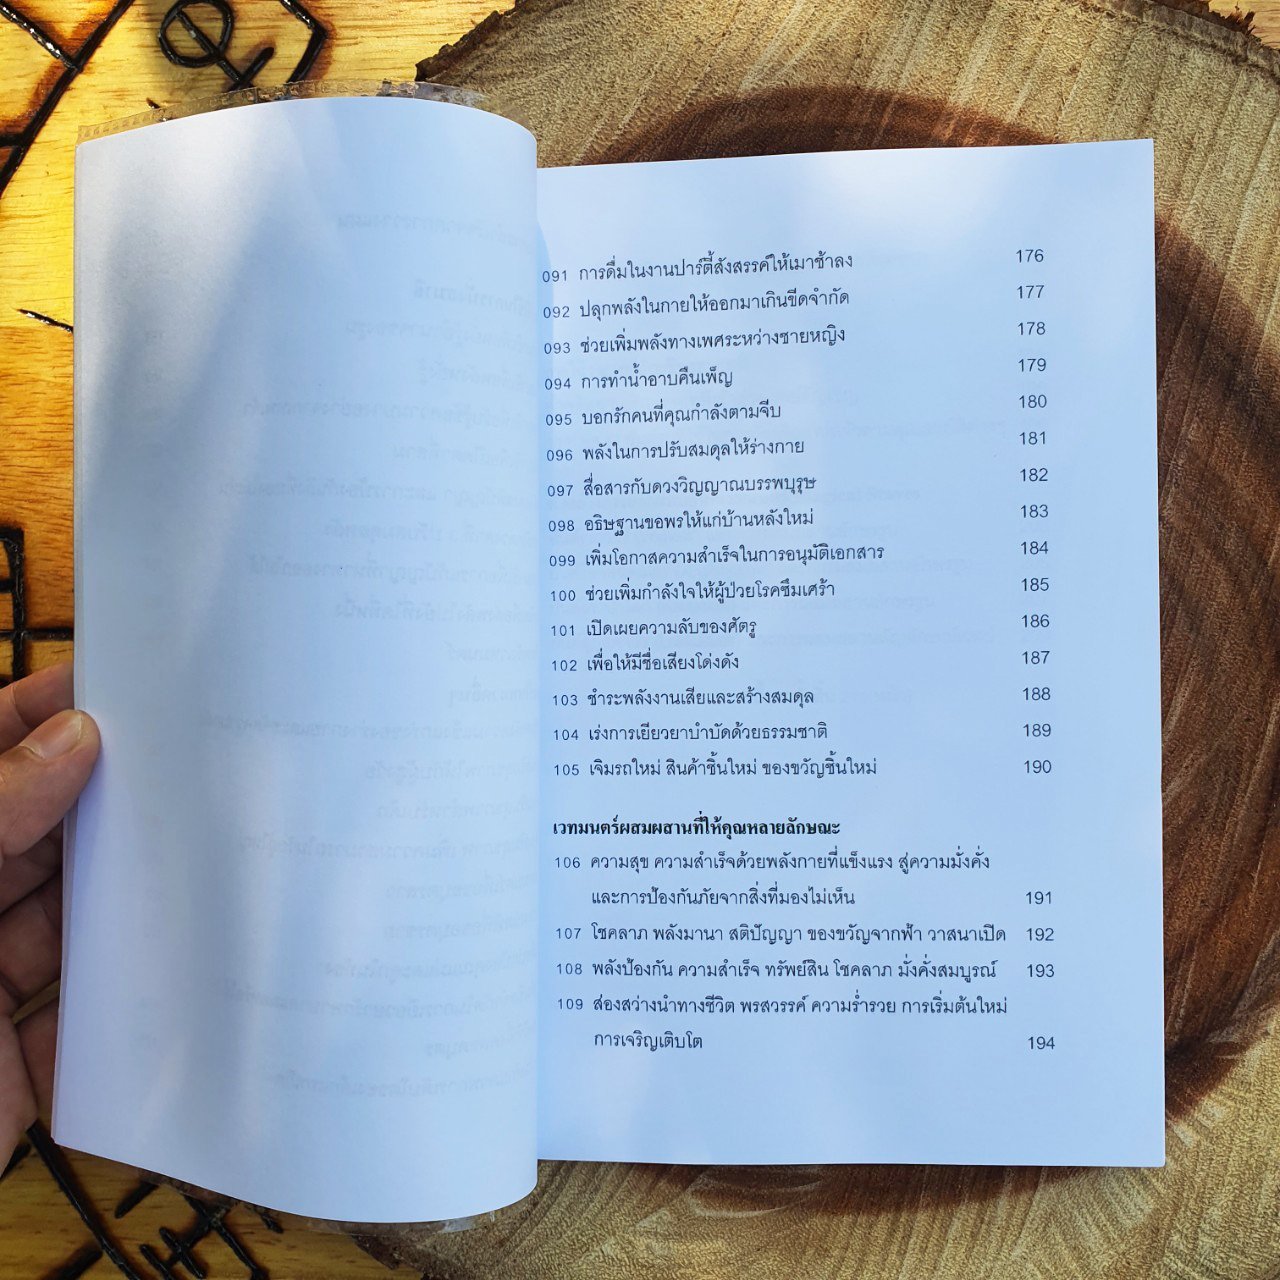 091 การดื่มในงานปาร์ตี้สังสรรค์ให้เมาช้าลง 176
092 ปลุกพลังในกายให้ออกมาเกินขีดจำกัด 177
093 ช่วยเพิ่มพลังทางเพศระหว่างชายหญิง 178
094 การทำน้ำอาบคืนเพ็ญ 179
095 บอกรักคนที่คุณกำลังตามจีบ 180
096 พลังในการปรับสมดุลให้ร่างกาย 181
097 สื่อสารกับดวงวิญญาณบรรพบุรุษ 182
098 อธิษฐานขอพรให้แก่บ้านหลังใหม่ 183
099 เพิ่มโอกาสความสำเร็จในการอนุมัติเอกสาร 184
100 ช่วยเพิ่มกำลังใจให้ผู้ป่วยโรคซึมเศร้า 185
101 เปิดเผยความลับของศัตรู 186
102 เพื่อให้มีชื่อเสียงโด่งดัง 187
103 ชำระพลังงานเสียและสร้างสมดุล 188
104 เร่งการเยียวยาบำบัดด้วยธรรมชาติ 189
105 เจิมรถใหม่ สินค้าชิ้นใหม่ ของขวัญชิ้นใหม่ 190
เวทมนตร์ผสมผสานที่ให้คุณหลายลักษณะ
106 ความสุข ความสำเร็จด้วยพลังกายที่แข็งแรง สู่ความมั่งคั่ง
และการป้องกันภัยจากสิ่งที่มองไม่เห็น 191
107 โชคลาภ พลังมานา สติปัญญา ของขวัญจากฟ้า วาสนาเปิด 192
108 พลังป้องกัน ความสำเร็จ ทรัพย์สิน โชคลาภ มั่งคั่งสมบูรณ์ 193
109 ส่องสว่างนำทางชีวิต พรสวรรค์ ความร่ำรวย การเริ่มต้นใหม่
การเจริญเติบโต 194